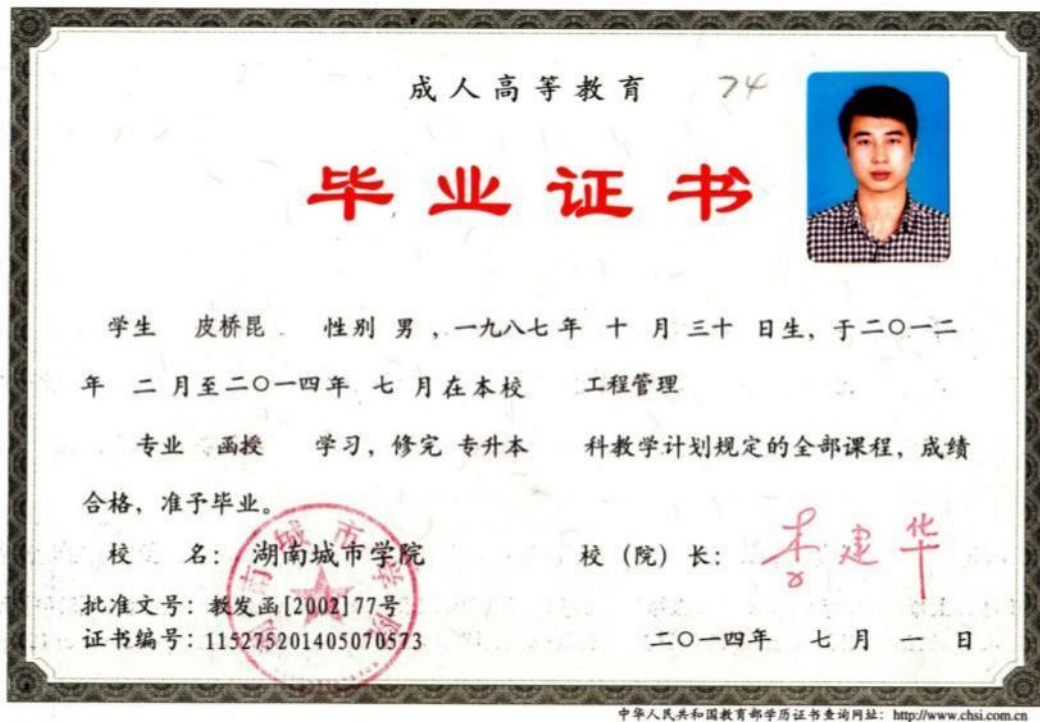 成人高等教育 74
毕业证书
学生 皮桥昆 性别 男 ，一九八七年 十 月 三十 日生，于二〇一二
年 二 月至二〇一四年 七 月在本校 工程管理
专业 函授 学习，修完 专升本 科教学计划规定的全部课程，成绩
合格，准予毕业。
校 名：湖南城市学院 校（院）长：李建华
批准文号：教发函[2002]77号
证书编号：115275201405070573 二〇一四年 七 月 一 日
中华人民共和国教育部学历证书查询网址：http://www.chsi.com.cn